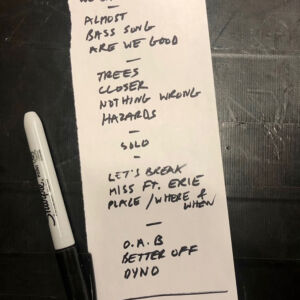 ALMOST
BASS SONG
ARE WE GOOD
—
TREES
CLOSER
NOTHING WRONG
HAZARDS
—
SOLO
—
LET'S BREAK
MISS FT. ERIE
PLACE / WHERE & WHEN
—
O.A.B
BETTER OFF
DYNO
Sharpie